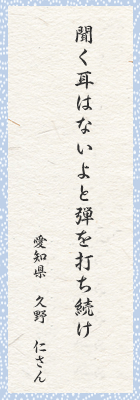 聞く耳はないよと弾を打ち続け
愛知県 久野 仁さん